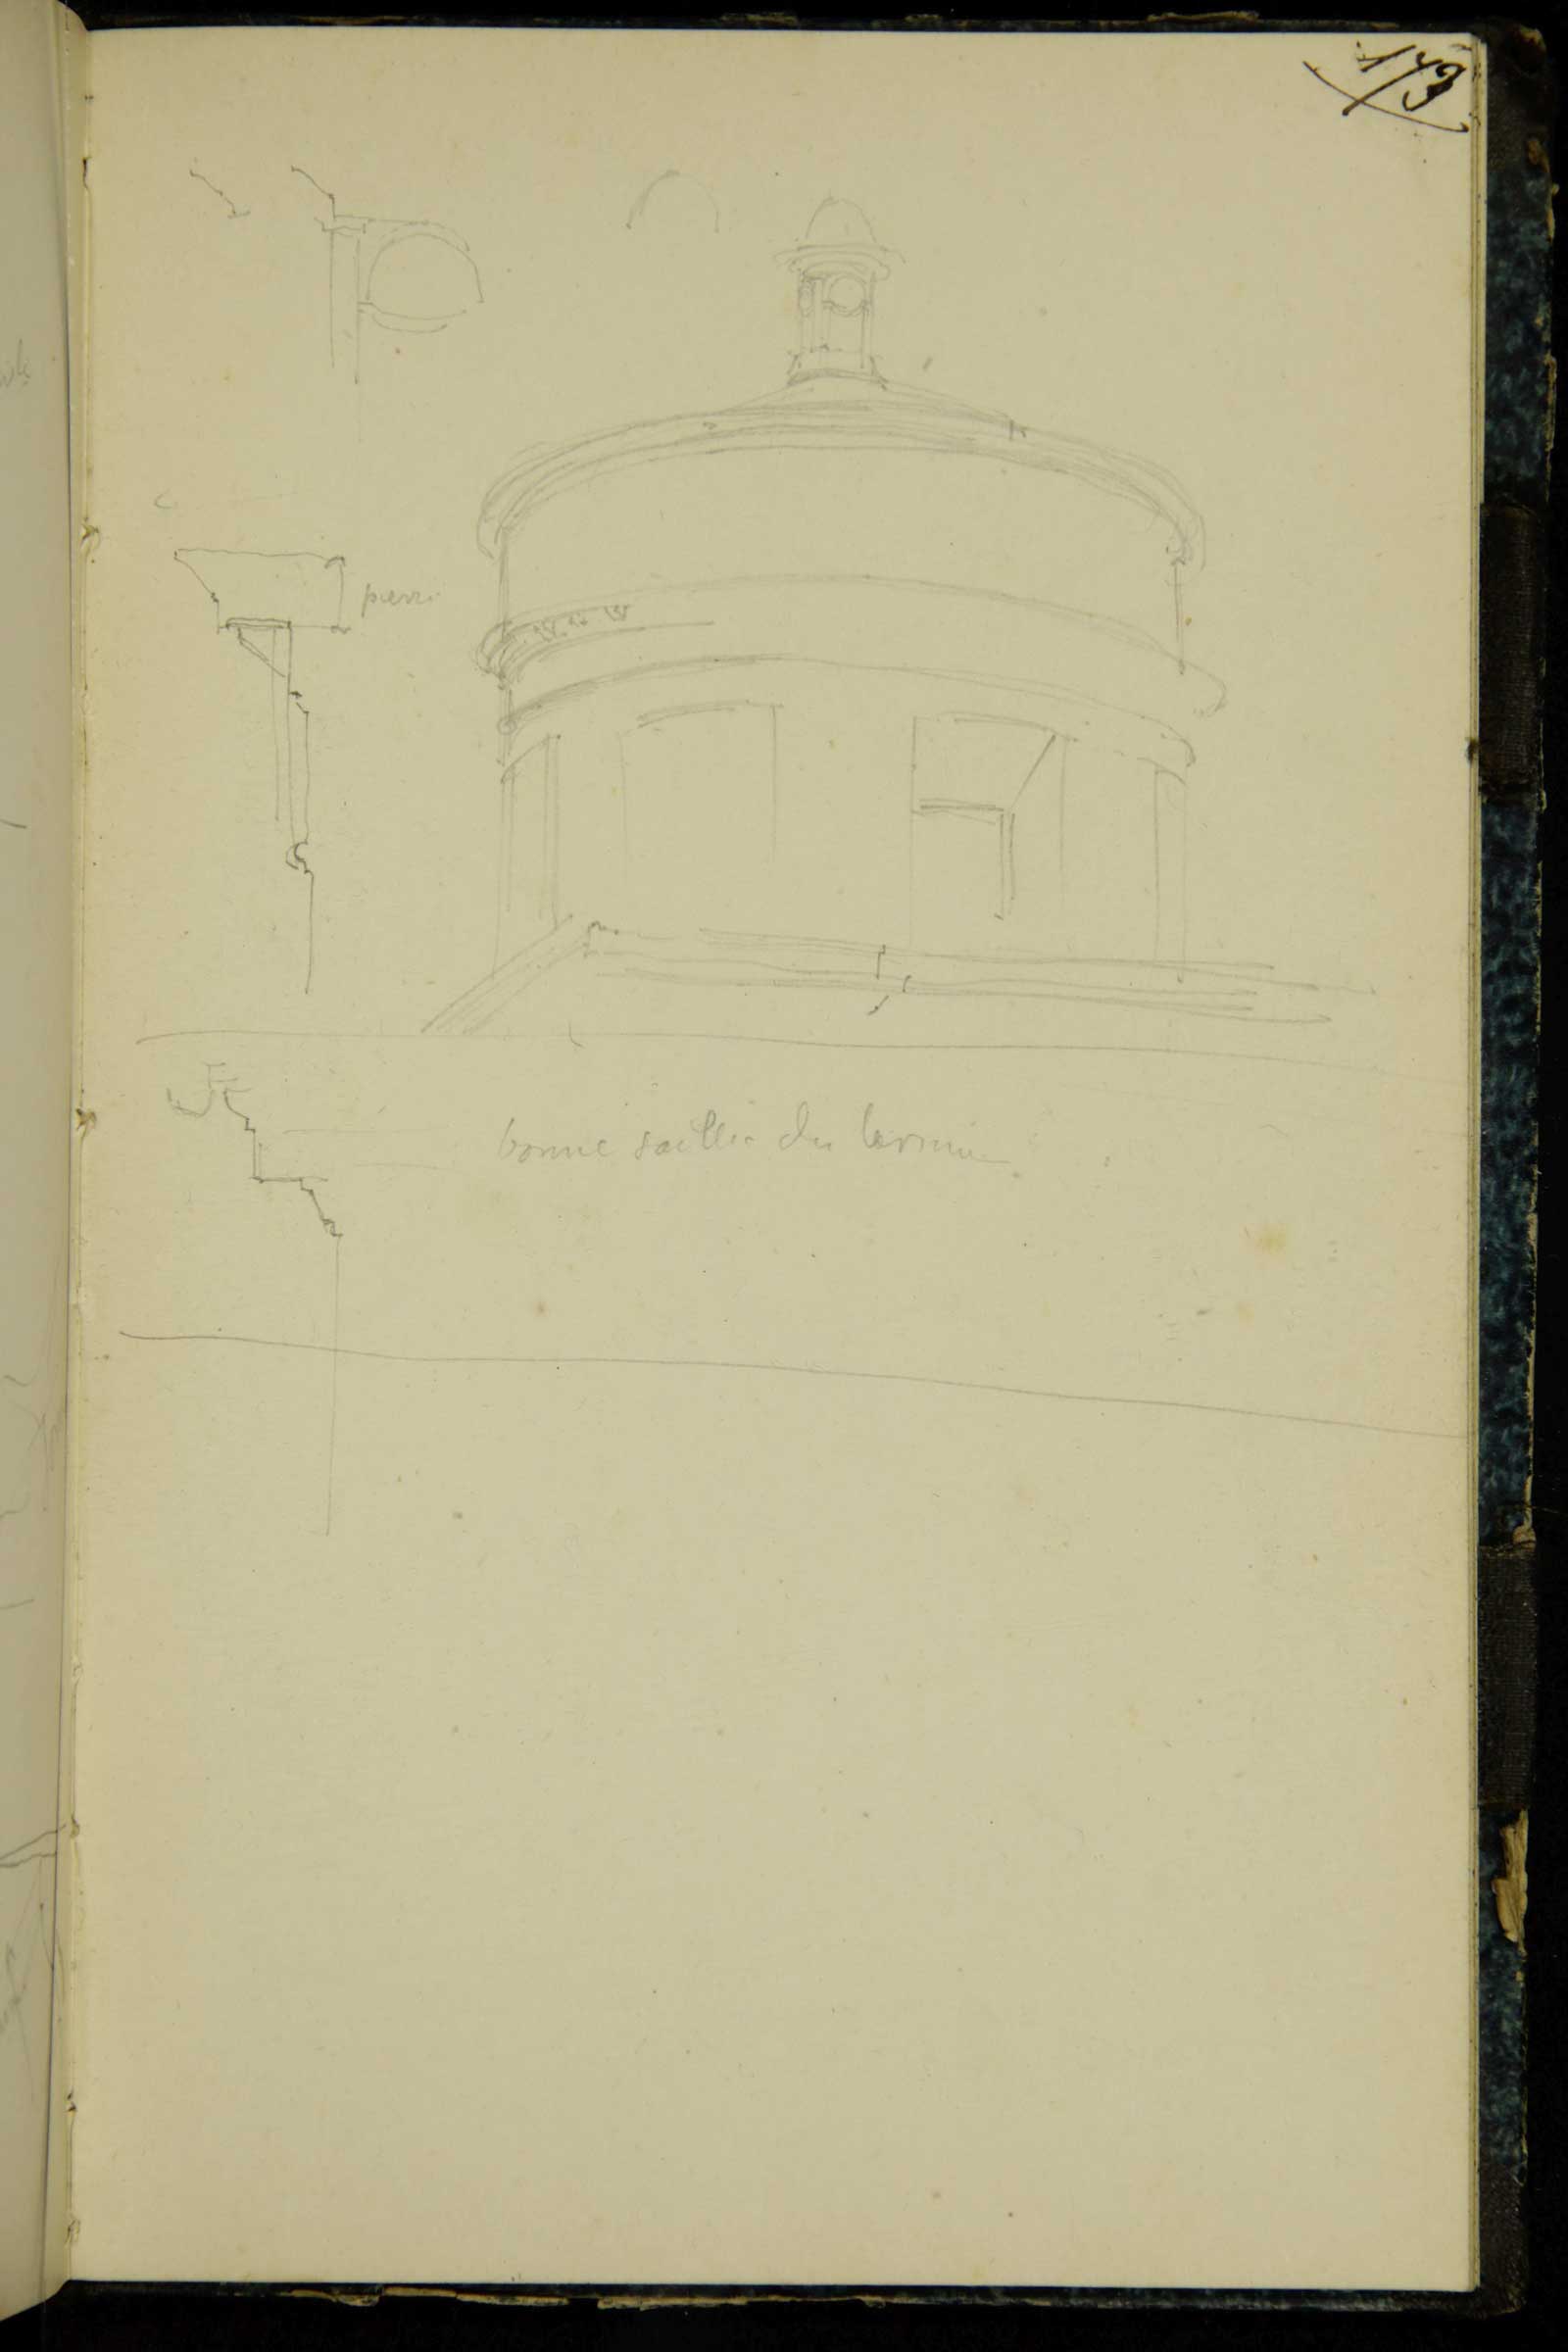 173
pierre
bonne saillie du larmier